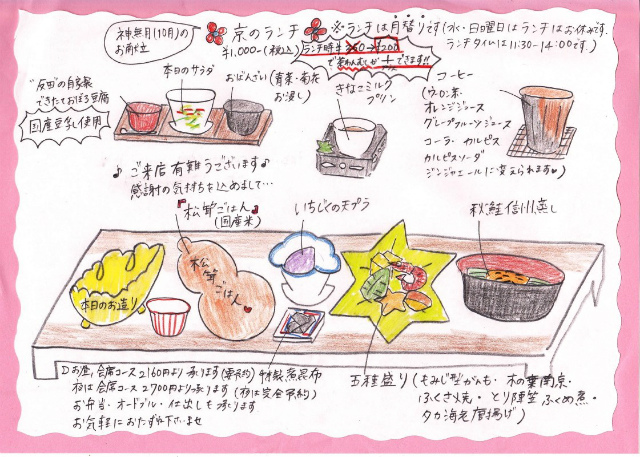 神無月(10月)の
お献立
京のランチ
¥1,000-(税込)
※ランチは月替りです(水・日曜日はランチはお休みです。
ランチタイムは11:30-14:00です。)
ランチ時 ¥200
で茶わんむしが+できます!!
"反田"の自家製
できたておぼろ豆腐
国産豆乳使用
本日のサラダ
おばんざい(青菜・菊花
お浸し)
きなこミルク
プリン
コーヒー
(ウーロン茶・
オレンジジュース
グレープフルーツジュース
コーラ・カルピス
カルピスソーダ
ジンジャエールに変えられます♥)
♪ご来店有難うございます♪
感謝の気持ちを込めまして…
松茸ごはん
(国産米)
いちじくの天プラ
秋鮭信州蒸し
本日のお造り
松茸
ごはん♥
お昼、会席コース2160円より承ります(要予約)
夜は会席コース2700円より承ります(夜は完全予約)
お弁当・オードブル・仕出しも承ります
お気軽におたずね下さいませ
特製煮昆布
五種盛り(もみじ型がんも・木の葉南京・
ふくさ焼・とり陣笠ふくめ煮・
タカ海老唐揚げ)